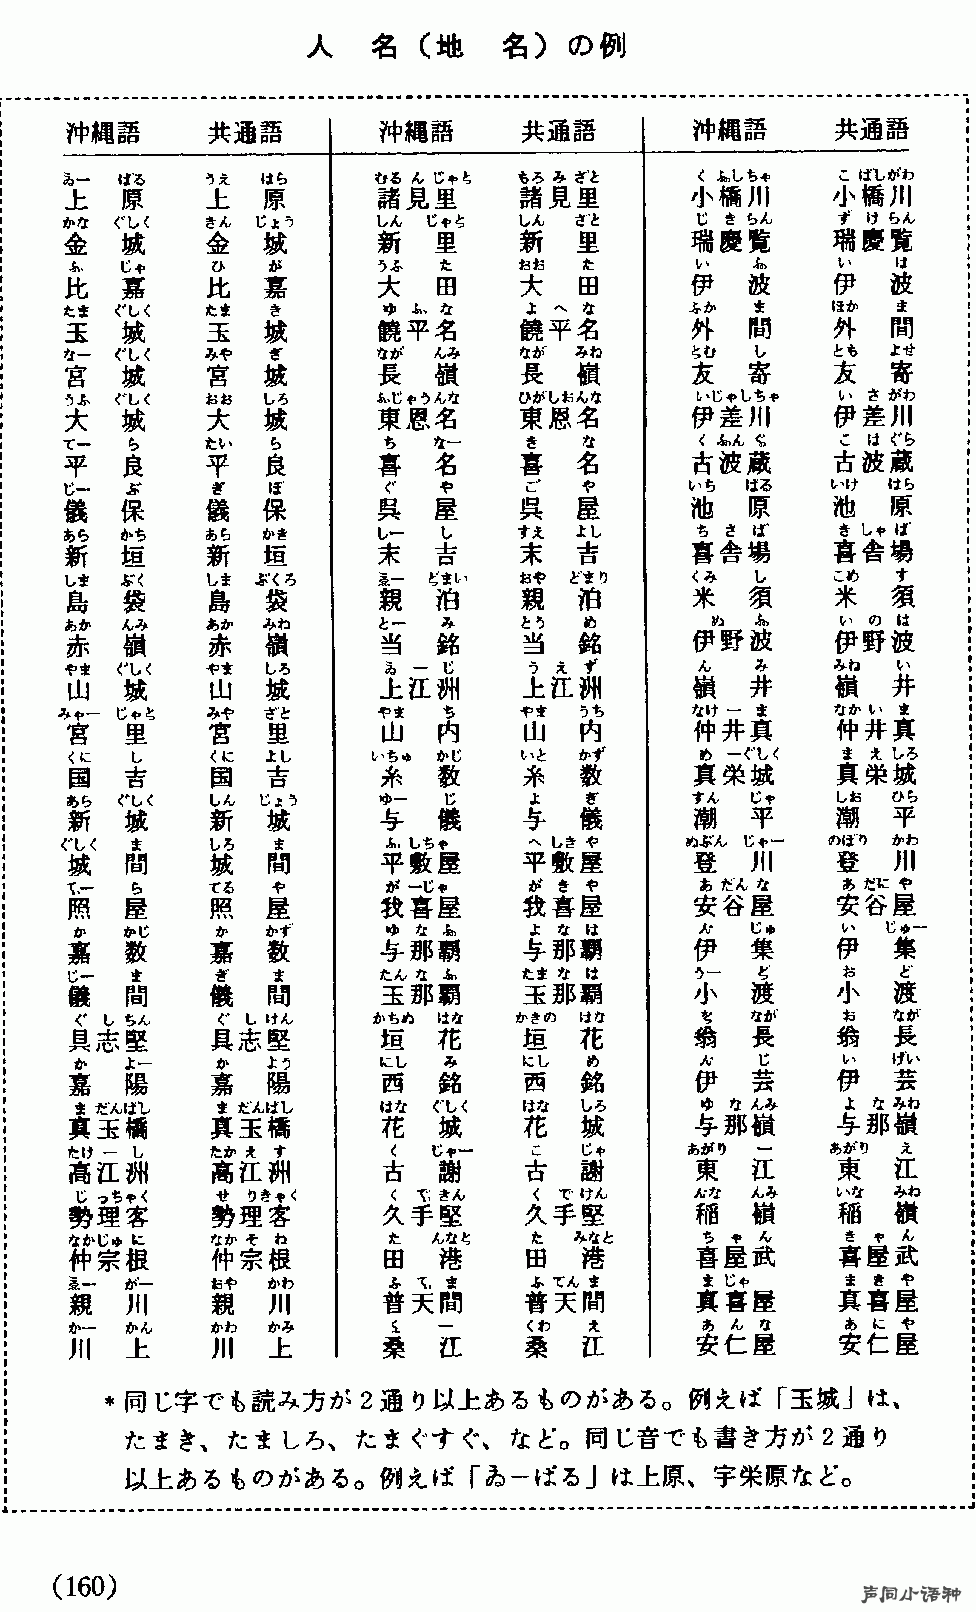 人 名（地 名）の例
沖縄語 共通語
ゐー ばる うえ はら
上 原 上 原
かな ぐしく きん じょう
金 城 金 城
ふ じゃ ひ が
比 嘉 比 嘉
たま ぐしく たま き
玉 城 玉 城
なー ぐしく みや ぎ
宮 城 宮 城
うふ ぐしく おお しろ
大 城 大 城
てー ら たい ら
平 良 平 良
じー ぶ ぎ ぼ
儀 保 儀 保
あら かち あら かき
新 垣 新 垣
しま ぶく しま ぶくろ
島 袋 島 袋
あか んみ あか みね
赤 嶺 赤 嶺
やま ぐしく やま しろ
山 城 山 城
みゃー じゃと みや ざと
宮 里 宮 里
くに し くに よし
国 吉 国 吉
あら ぐしく しん じょう
新 城 新 城
ぐしく ま しろ ま
城 間 城 間
てぃー ら てる や
照 屋 照 屋
か かじ か かず
嘉 数 嘉 数
じー ま ぎ ま
儀 間 儀 間
ぐ し ちん ぐ し けん
具志堅 具志堅
か よー か よう
嘉 陽 嘉 陽
ま だんばし ま だんばし
真玉橋 真玉橋
たけ ー し たか え す
高江洲 高江洲
じ っちゃく せ りきゃく
勢理客 勢理客
なかじゅに なか そ ね
仲宗根 仲宗根
ゑー がー おや かわ
親 川 親 川
かー かん かわ かみ
川 上 川 上
沖縄語 共通語
むる ん じゃと もろ み ざと
諸見里 諸見里
しん じゃと しん ざと
新 里 新 里
うふ た おお た
大 田 大 田
ゆ ふ な よ へ な
饒平名 饒平名
なが んみ なが みね
長 嶺 長 嶺
ふじゃうんな ひがしおんな
東恩名 東恩名
ち なー き な
喜 名 喜 名
ぐ や ご や
呉 屋 呉 屋
しー し すえ よし
末 吉 末 吉
ゑー どまい おや どまり
親 泊 親 泊
とー み とう め
当 銘 当 銘
ゐ ー じ う え ず
上江洲 上江洲
やま ち やま うち
山 内 山 内
いちゅ かじ いと かず
糸 数 糸 数
ゆー じ よ ぎ
与 儀 与 儀
ふ しちゃ へ しき や
平敷屋 平敷屋
が ーじゃ が き や
我喜屋 我喜屋
ゆ な ふ よ な は
与那覇 与那覇
たん な ふ たま な は
玉那覇 玉那覇
かちぬ はな かきの はな
垣 花 垣 花
にし み にし め
西 銘 西 銘
はな ぐしく はな しろ
花 城 花 城
く じゃー こ じゃ
古 謝 古 謝
く でぃ きん く で けん
久手堅 久手堅
た んなと た みなと
田 港 田 港
ふ てぃ ま ふ てん ま
普天間 普天間
く ー くわ え
桑 江 桑 江
沖縄語 共通語
く ふしちゃ こ ばしがわ
小橋川 小橋川
じ き らん ず け らん
瑞慶覧 瑞慶覧
い ふ い は
伊 波 伊 波
ふか ま ほか ま
外 間 外 間
とむ し とも よせ
友 寄 友 寄
いじゃしちゃ い さ がわ
伊差川 伊差川
く ふん ぐ こ は ぐら
古波蔵 古波蔵
いち ばる いけ はら
池 原 池 原
ち さ ば き しゃ ば
喜舎場 喜舎場
くみ し こめ す
米 須 米 須
ぬ ふ い の は
伊野波 伊野波
ん み みね い
嶺 井 嶺 井
なけ ー ま なか い ま
仲井真 仲井真
め ーぐしく ま え しろ
真栄城 真栄城
すん じゃ しお ひら
潮 平 潮 平
ぬぶん じゃー のぼり かわ
登 川 登 川
あ だん な あ だに や
安谷屋 安谷屋
ん じゅ い じゅー
伊 集 伊 集
うー ど お ど
小 渡 小 渡
を なが お なが
翁 長 翁 長
ん じ い げい
伊 芸 伊 芸
ゆ な んみ よ な みね
与那嶺 与那嶺
あがり ー あがり え
東 江 東 江
んな んみ いな みね
稲 嶺 稲 嶺
ち ゃ ん き ゃ ん
喜屋武 喜屋武
ま じゃ ま き や
真喜屋 真喜屋
あ ん な あ に や
安仁屋 安仁屋
＊同じ字でも読み方が２通り以上あるものがある。例えば「玉城」は、
たまき、たましろ、たまぐすぐ、など。同じ音でも書き方が２通り
以上あるものがある。例えば「ゐーばる」は上原、宇栄原など。
(160)
声同小语种